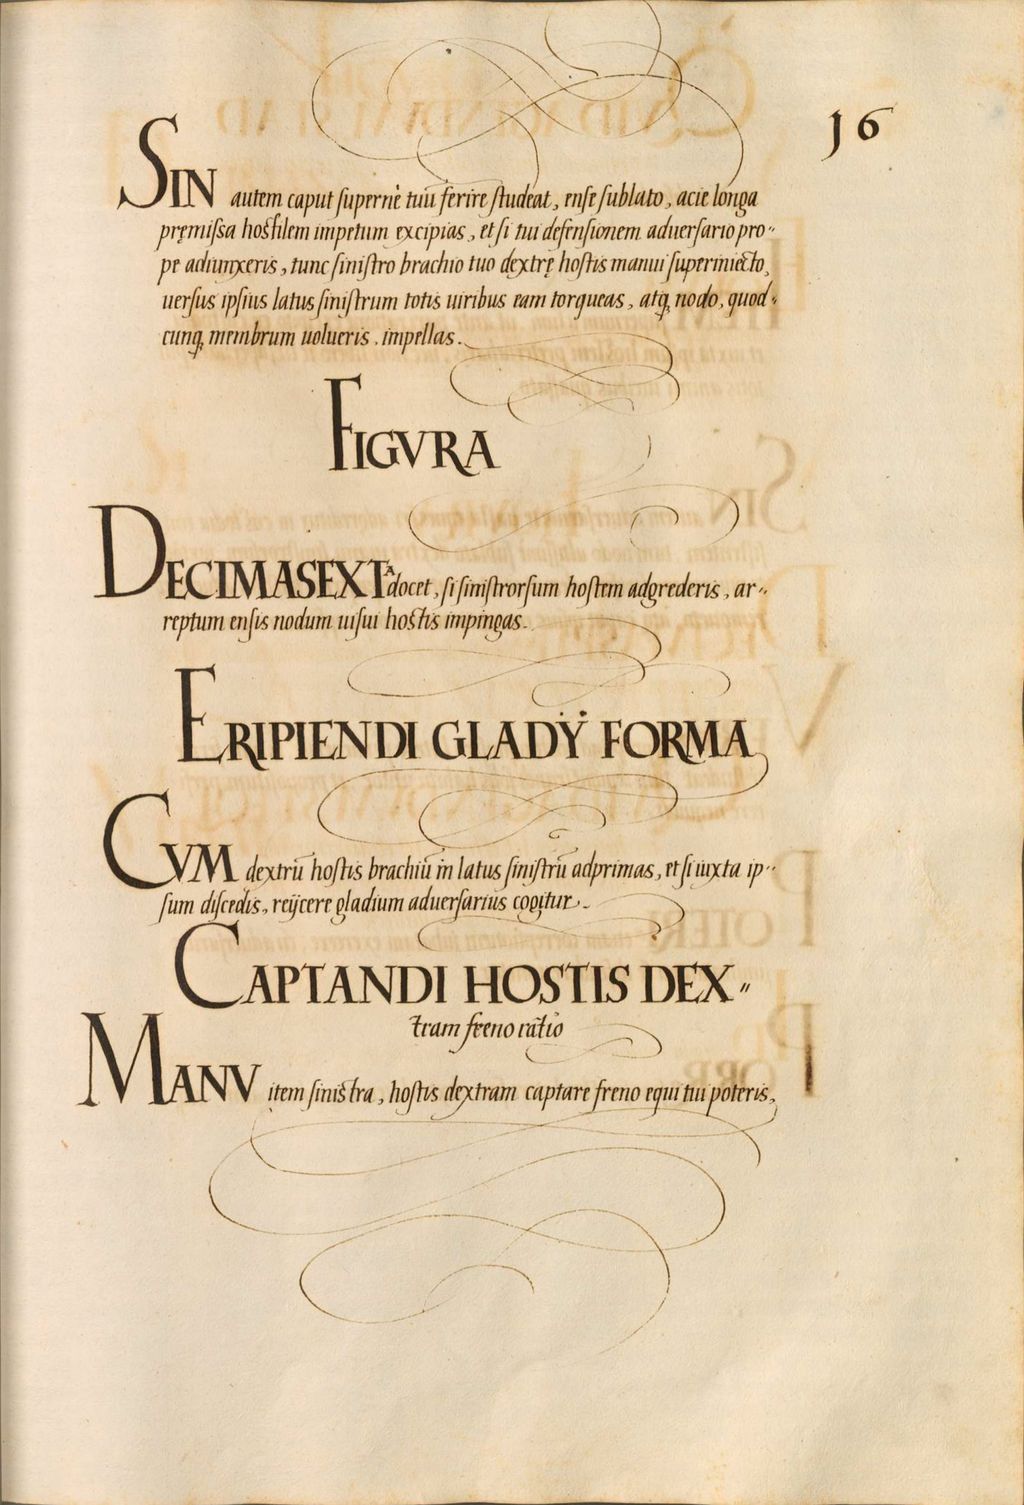 16
SIN autem caput ſupernè tuū ferire ſtudeat, enſe ſublato, acie longa
pręmiſsa hoſtilem impetum excipias, et ſi tui defenſionem aduerſario pro-
pe adiunxeris, tunc ſiniſtro brachio tuo dextrę hoſtis manui ſuperiniecto,
uerſus ipſius latus ſiniſtrum totis uiribus eam torqueas, atq, nodo, quod-
cunq, membrum uolueris, impellas.
FIGVRA
DECIMASEXTA docet, ſi ſiniſtrorſum hoſtem adgrederis, ar-
reptum enſis nodum uiſui hoſtis impingas.
ERIPIENDI GLADŸ FORMA
CVM dextrū hoſtis brachiū in latus ſiniſtrū adprimas, et ſi iuxta ip-
ſum diſcedis, reijcere gladium aduerſarius cogitur.
CAPTANDI HOSTIS DEX-
tram freno ratio
MANV item ſiniſtra, hoſtis dextram captare freno equi tui poteris,